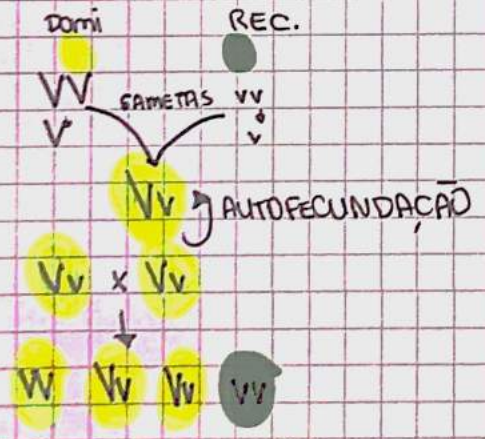 Domi REC.
VV GAMETAS vv
V v
Vv AUTOFECUNDAÇÃO
Vv x Vv
VV Vv Vv vv